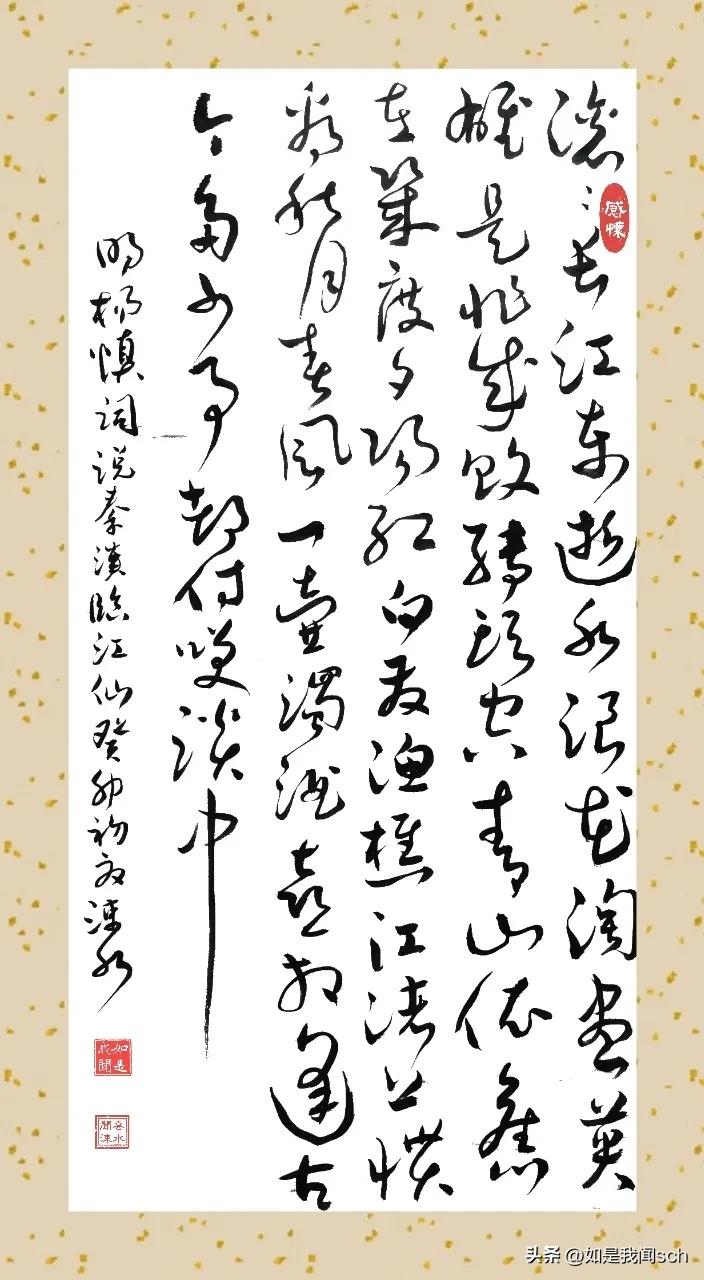 感懷
滚〻长江东逝水浪花淘尽英
雄是非成败转头空青山依舊
在几度夕阳红白发渔樵江渚上惯
看秋月春风一壶濁酒喜相逢古
今多少事都付笑谈中
明杨慎词说秦汉临江仙癸卯初夏涑水
如是我聞
头条 @如是我闻sch